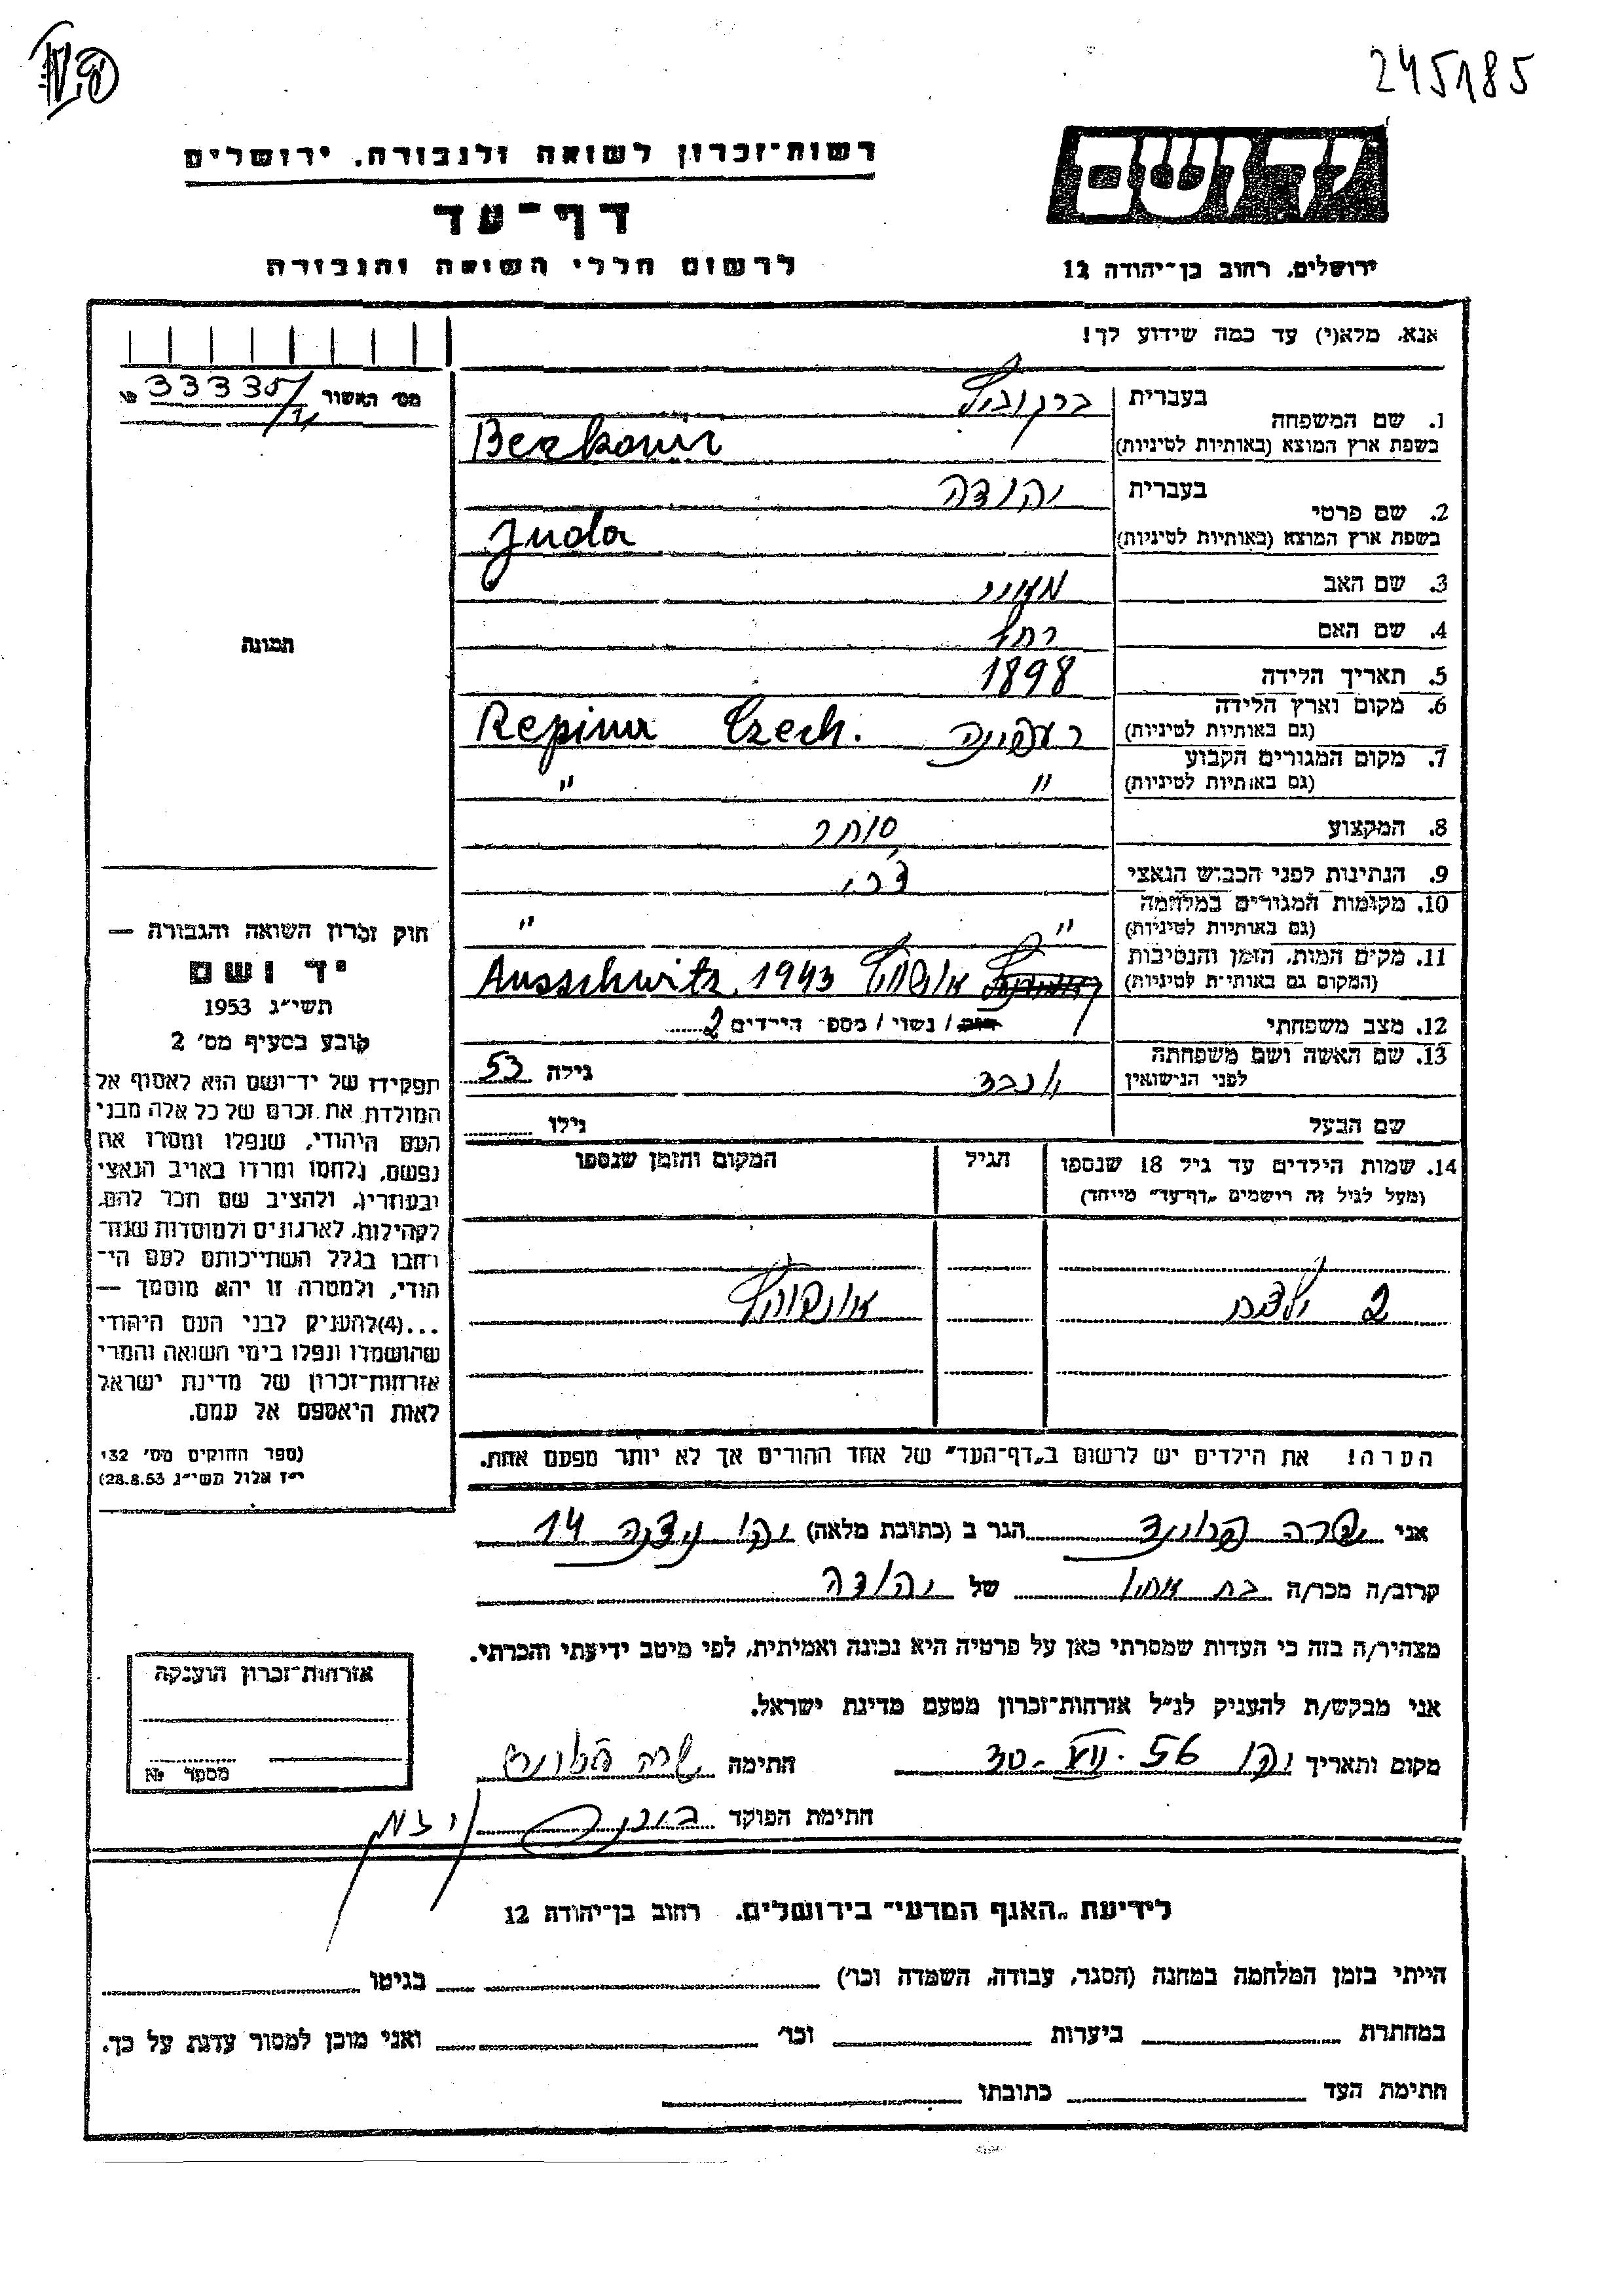 245185
רשות־זכרון לשואה ולגבורה, ירושלים
יד ושם
דף־עד
לרשום חללי השואה והגבורה
ירושלים, רחוב בן־יהודה 12
אנא, מלא(י) עד כמה שידוע לך!
מס׳ האשור 33335 №
1. שם המשפחה בעברית ברקוביץ
בשפת ארץ המוצא (באותיות לטיניות) Berkovir
2. שם פרטי בעברית יהודה
בשפת ארץ המוצא (באותיות לטיניות) Juda
3. שם האב
4. שם האם רחל
5. תאריך הלידה 1898
6. מקום וארץ הלידה (גם באותיות לטיניות) רעפינה Repina Czech.
7. מקום המגורים הקבוע (גם באותיות לטיניות) " "
8. המקצוע סוחר
9. הנתינות לפני הכבוש הנאצי צ'כי
10. מקומות המגורים במלחמה (גם באותיות לטיניות) " "
11. מקום המות, הזמן והנסיבות (המקום גם באותיות לטיניות) אושוויץ Ausschwitz 1943
12. מצב משפחתי רווק / נשוי / מספר הילדים 2
13. שם האשה ושם משפחתה לפני הנישואין גילה 53
שם הבעל גילו
תמונה
14. שמות הילדים עד גיל 18 שנספו (מעל לגיל זה רושמים „דף־עד" מיוחד) הגיל המקום והזמן שנספו
2 ילדים אושוויץ
הערה! את הילדים יש לרשום ב„דף־העד" של אחד ההורים אך לא יותר מפעם אחת.
חוק זכרון השואה והגבורה —
יד ושם
תשי״ג 1953
קובע בסעיף מס׳ 2
תפקידו של יד־ושם הוא לאסוף אל
המולדת את זכרם של כל אלה מבני
העם היהודי, שנפלו ומסרו את
נפשם, נלחמו ומרדו באויב הנאצי
ובעוזריו, ולהציב שם וזכר להם,
לקהילות, לארגונים ולמוסדות שנח־
רבו בגלל השתייכותם לעם הי־
הודי, ולמטרה זו יהא מוסמך —
...(4) להעניק לבני העם היהודי
שהושמדו ונפלו בימי השואה והמרי
אזרחות־זכרון של מדינת ישראל
לאות היאספם אל עמם.
(ספר החוקים מס׳ 132
י״ז אלול תשי״ג 28.8.53)
אני שרה הגר ב (כתובת מלאה) 14
קרוב/ה מכר/ה בת אחיו של יהודה
מצהיר/ה בזה כי העדות שמסרתי כאן על פרטיה היא נכונה ואמיתית, לפי מיטב ידיעתי והכרתי.
אני מבקש/ת להעניק לנ״ל אזרחות־זכרון מטעם מדינת ישראל.
מקום ותאריך 30.VII.56 חתימה שרה
חתימת הפוקד
אזרחות־זכרון הוענקה
מספר №
לידיעת „האגף המדעי" בירושלים, רחוב בן־יהודה 12
הייתי בזמן המלחמה במחנה (הסגר, עבודה, השמדה וכו׳) בגיטו
במחתרת ביערות וכו׳ ואני מוכן למסור עדות על כך.
חתימת העד כתובתו